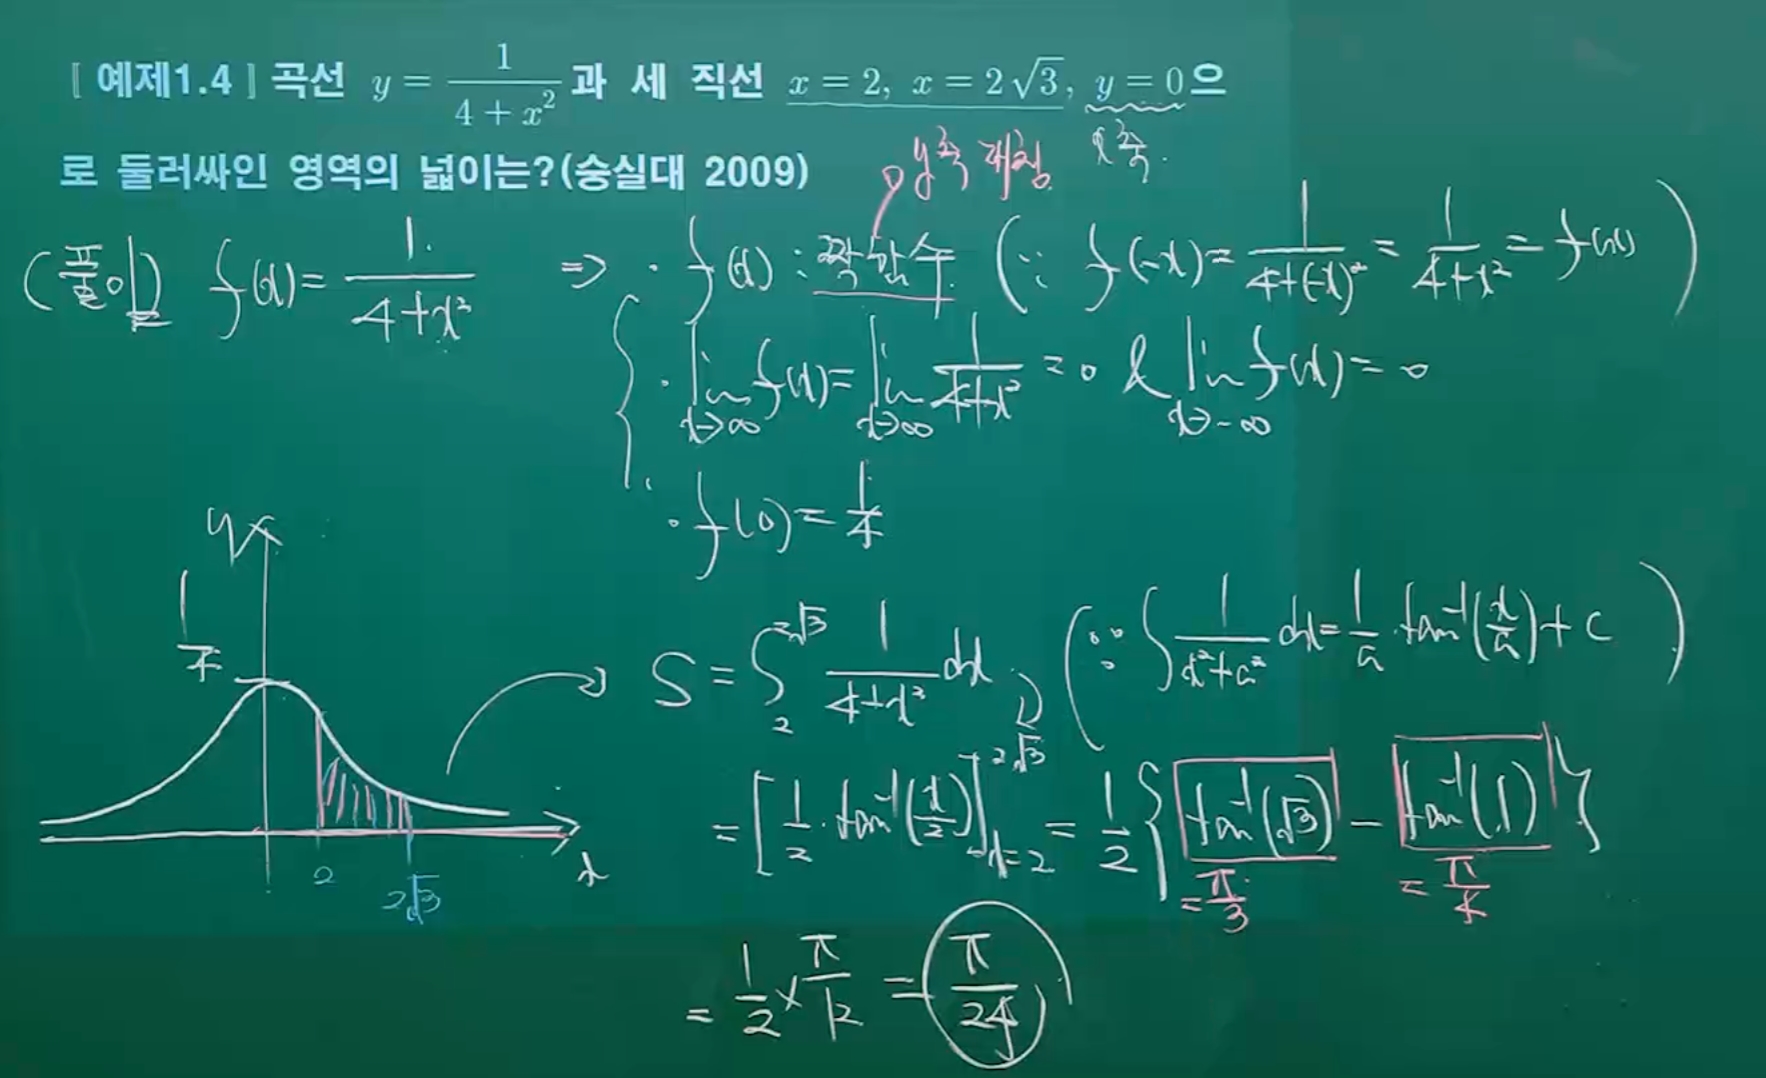 [ 예제1.4 ] 곡선 y = 1/(4 + x²) 과 세 직선 x = 2, x = 2√3, y = 0으
로 둘러싸인 영역의 넓이는?(숭실대 2009)
y축 대칭
x축.
(풀이) f(x) = 1/(4+x²) ⇒ · f(x) : 짝함수 (∵ f(-x) = 1/(4+(-x)²) = 1/(4+x²) = f(x))
· lim x→∞ f(x) = lim x→∞ 1/(4+x²) = 0 & lim x→-∞ f(x) = 0
· f(0) = 1/4
y
1/4
2
2√3
x
S = ∫₂^{2√3} 1/(4+x²) dx (∵ ∫ 1/(x²+a²) dx = 1/a · tan⁻¹(x/a) + C)
= [1/2 · tan⁻¹(x/2)]_{x=2}^{2√3} = 1/2 {tan⁻¹(√3) - tan⁻¹(1)}
= π/3
= π/4
= 1/2 × π/12 = π/24